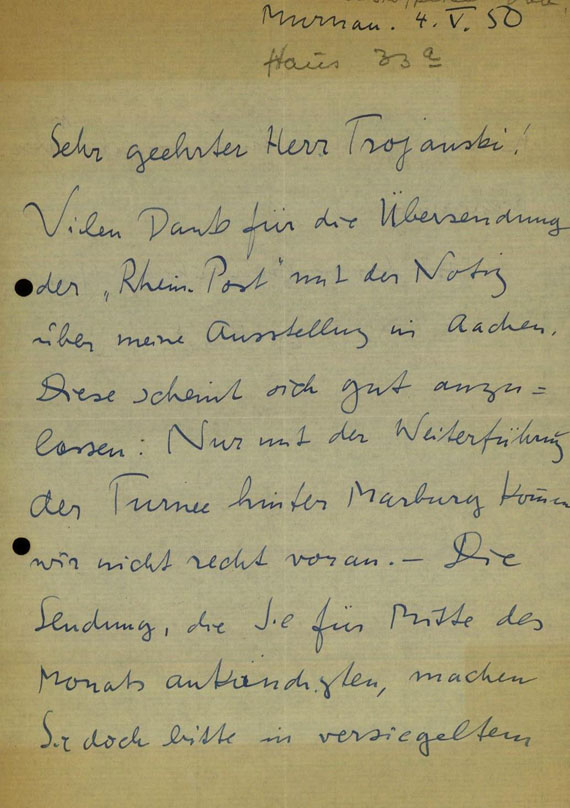 Murnau. 4. V. 50
Haus 33a
Sehr geehrter Herr Trojanski!
Vilen Dank für die Übersendung
der „Rhein. Post" mit der Notiz
über meine Ausstellung in Aachen.
Diese scheint sich gut anzu=
lassen: Nur mit der Weiterführung
der Turnee hinter Marburg kommen
wir nicht recht voran. – Die
Sendung, die Sie für Mitte des
Monats ankündigten, machen
Sie doch bitte in versiegeltem